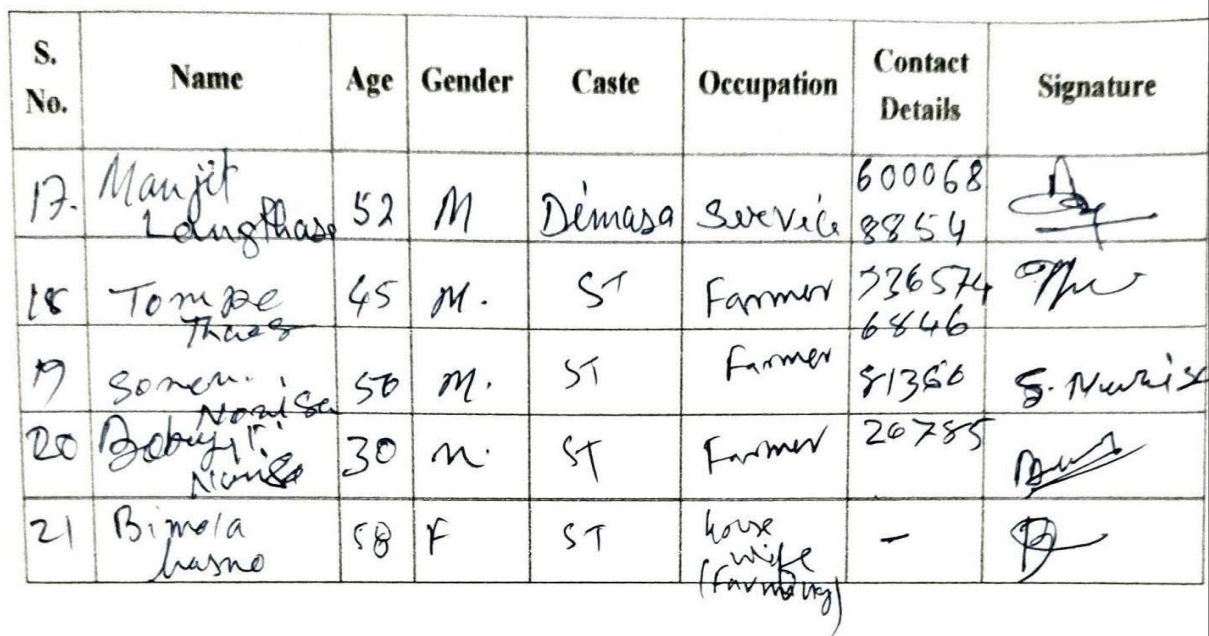 S. No. Name Age Gender Caste Occupation Contact Details Signature
17. Manjit Langthasa 52 M Dimasa Service 600068 8854
18 Tompe 45 M. ST Farmer 736574 6846
19 Somen. Nonisa 50 M. ST Farmer 81360 S. Nunisa
20 30 M. ST Farmer 26785
21 Bimola hasno 58 F ST house wife (Farming) -